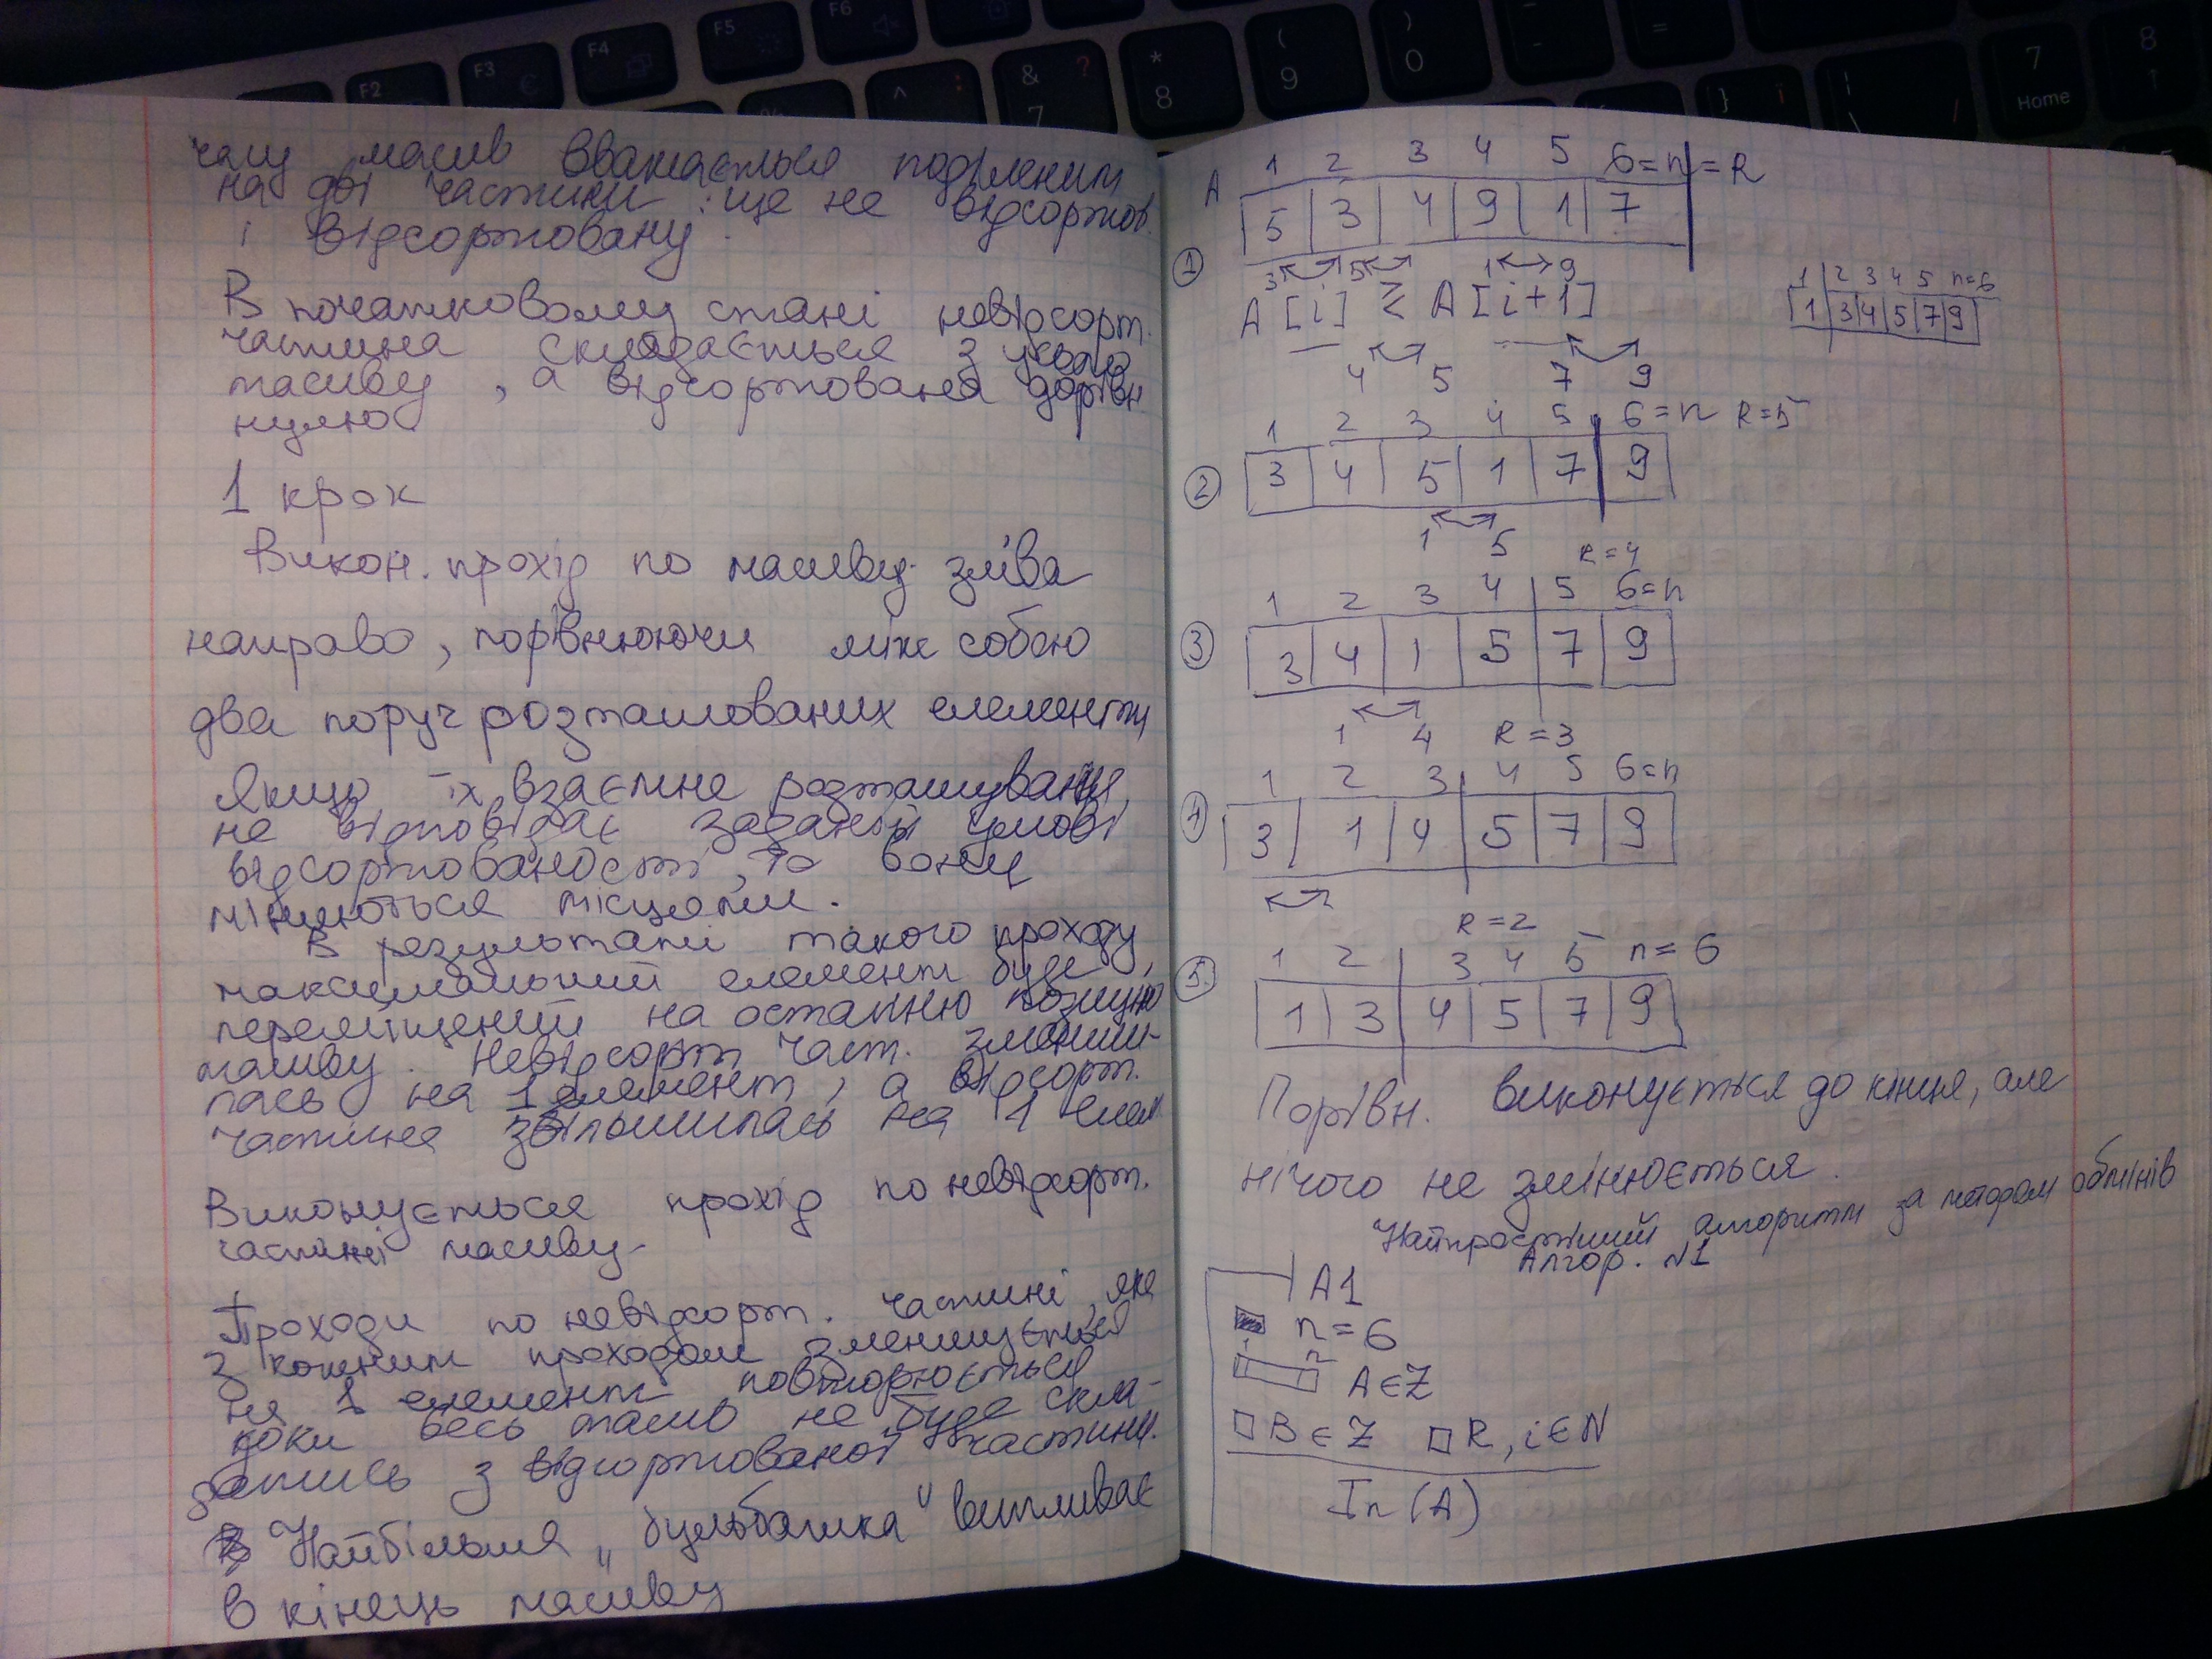 часу масив вважається поділеним
на дві частини: ще не відсортов.
і відсортовану.
В початковому стані невідсорт.
частина складається з усього
масиву, а відсортована дорівн
нулю.
1 крок
Викон. прохід по масиву зліва
направо, порівнюючи між собою
два поруч розташованих елементи
Якщо їх взаємне розташування
не відповідає заданій умові
відсортованості, то вони
міняються місцями.
В результаті такого проходу,
максимальний елемент буде
переміщений на останню позицію
масиву. Невідсорт част. зменши-
лась на 1 елемент, а відсорт.
частина збільшилась на 1 елем.
Виконується прохід по невідсорт.
частині масиву.
Проходи по невідсорт. частині, яка
з кожним проходом зменшується
на 1 елемент повторюється
поки весь масив не буде скла-
датись з відсортованої частини.
Найбільша „бульбашка" випливає
в кінець масиву
A 1 2 3 4 5 6=n=R
5 3 4 9 1 7
① 3 5 1 9
A[i] ≥ A[i+1]
4 5 7 9
1 2 3 4 5 n=6
1 3 4 5 7 9
1 2 3 4 5 6=n R=5
② 3 4 5 1 7 9
1 5 R=4
1 2 3 4 5 6=n
③ 3 4 1 5 7 9
1 4 R=3
1 2 3 4 5 6=n
④ 3 1 4 5 7 9
R=2
1 2 3 4 5 n=6
⑤ 1 3 4 5 7 9
Порівн. виконується до кінця, але
нічого не змінюється.
Найпростіший алгоритм за методом обмінів
Алгор. №1
A1
n=6
A∈Z
□B∈Z □R,i∈N
In(A)